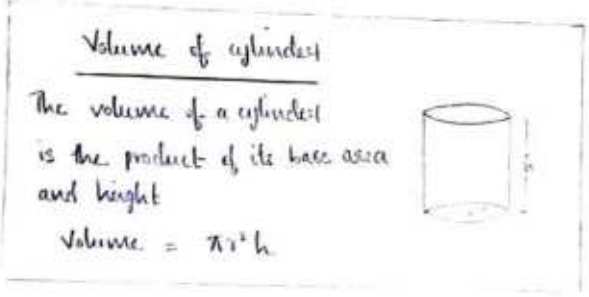 Volume of cylinder
The volume of a cylinder
is the product of its base area
and height
Volume = πr²h
h